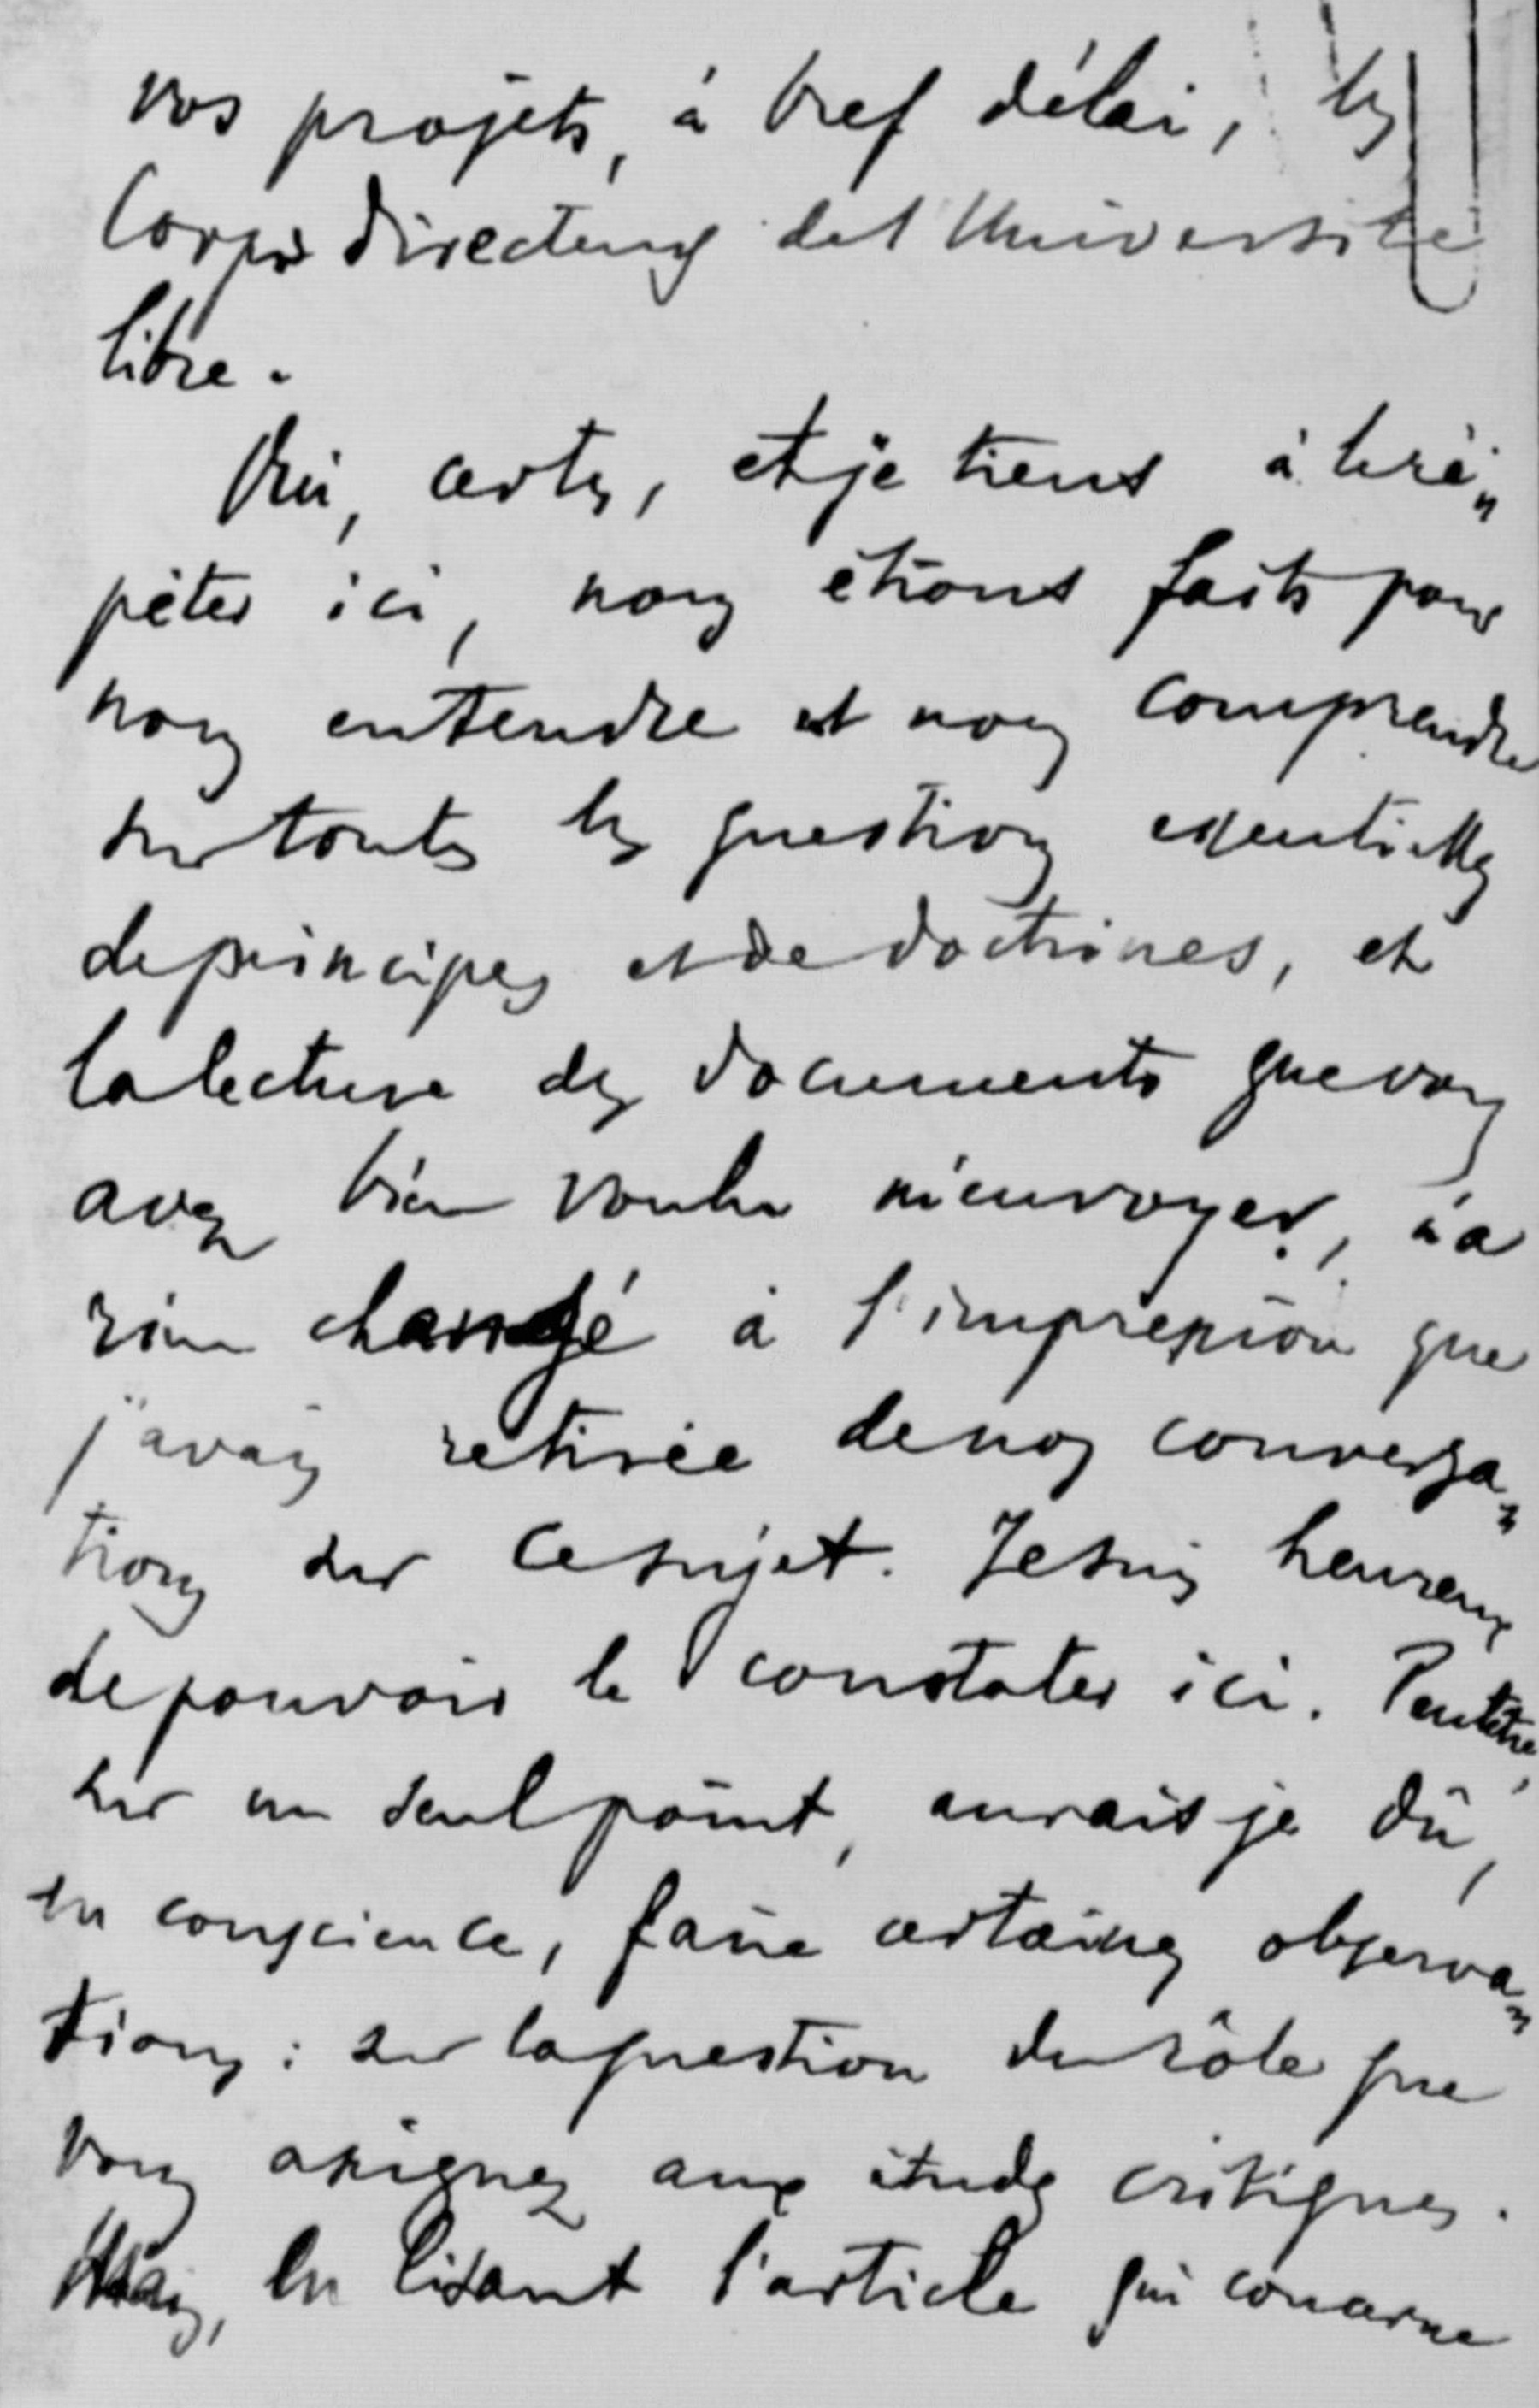 vos projets, à bref délai, les
Corps directeurs de l'Université
libre.
Oui, certes, et je tiens à le ré„
péter ici, nous étions faits pour
nous entendre et nous comprendre
sur toutes les questions essentielles
de principes et de doctrines, et
la lecture des documents que vous
avez bien voulu m'envoyer, n'a
rien changé à l'impression que
j'avais retirée de nos conversa„
tions sur ce sujet. Je suis heureux
de pouvoir le constater ici. Peutêtre,
sur un seul point, aurais je dû,
en conscience, faire certaines observa„
tions : sur la question du rôle que
vous assignez aux études critiques.
Mais, en lisant l'article qui concerne